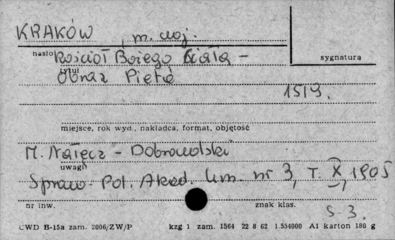 KRAKÓW m. woj.
hasło Kościół Bożego Ciała –
tytuł Obraz Pietà
sygnatura
1513.
miejsce, rok wyd., nakładca, format, objętość
M. Nałęcz – Dobrowolski
uwagi
Spraw. Pol. Akad. Um. nr 3, T. X, 1905
nr inw. znak klas.
S. 3.
CWD B-15a zam. 2006/ZW/P kzg 1 zam. 1564 22 8 62 1.554000 A1 karton 180 g